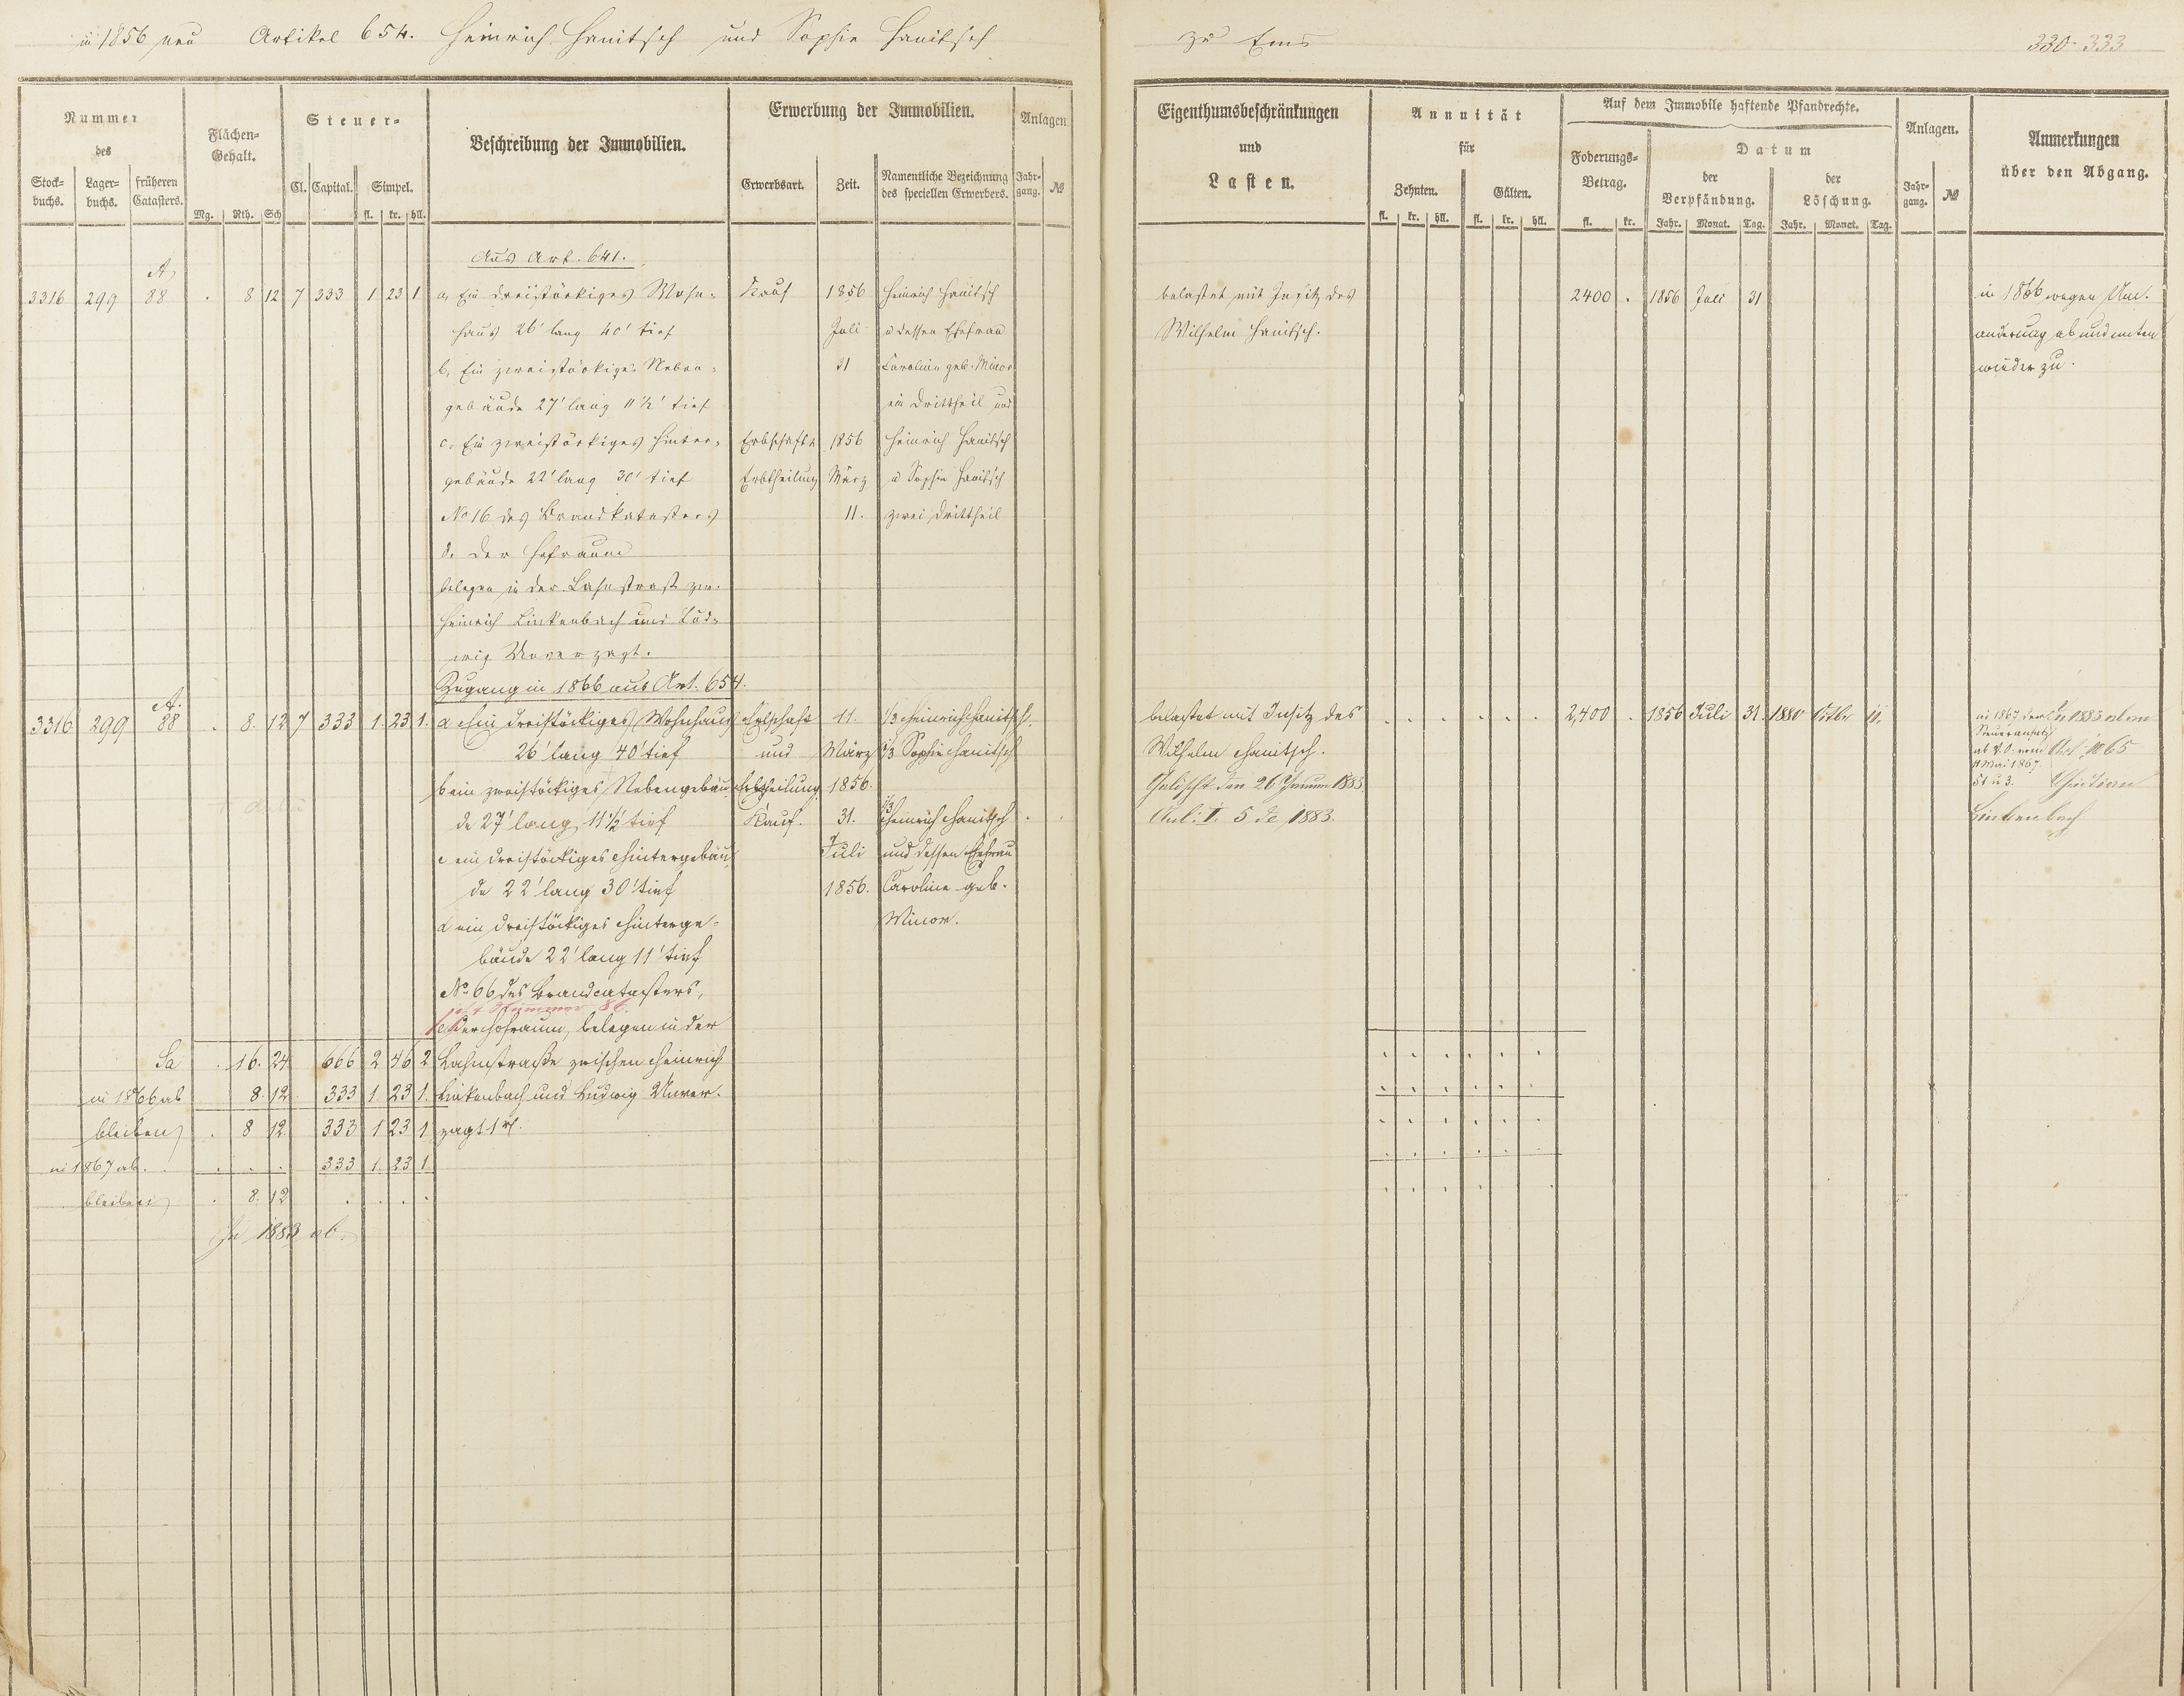 in 1856 neu Artikel 654. Heinrich Hanitsch und Sophie Hanitsch
zu Ems
330-333
Nummer
des
Stock-
buchs.
Lager-
buchs.
früheren
Catasters.
Flächen-
Gehalt.
Mg. Rth. Sch
Steuer-
Cl. Capital. Simpel.
fl. kr. hll.
Beschreibung der Immobilien.
Erwerbung der Immobilien.
Erwerbsart. Zeit.
Namentliche Bezeichnung
des speciellen Erwerbers.
Anlagen
Jahr-
gang. №
Eigenthumsbeschränkungen
und
Lasten.
Annuität
für
Zehnten. Gülten.
fl. kr. hll. fl. kr. hll.
Auf dem Immobile haftende Pfandrechte.
Foderungs-
Betrag.
fl. kr.
Datum
der
Verpfändung.
der
Löschung.
Jahr. Monat. Tag. Jahr. Monat. Tag.
Anlagen.
Jahr-
gang. №
Anmerkungen
über den Abgang.
Aus Art. 641.
A.
3316 299 88 . 8 12 7 333 1 23 1 a, Ein dreistöckiges Wohn- Kauf 1856 Heinrich Hanitsch
haus 26' lang 40' tief Juli u dessen Ehefrau
b, Ein zweistöckiges Neben- 31 Caroline geb. Minor
gebäude 27' lang 11½' tief ein Drittheil und
c. Ein zweistöckiges Hinter- Erbschaft u 1856 Heinrich Hanitsch
gebäude 22' lang 30' tief Erbtheilung März u Sophie Hanitsch
No 16 des Brandkatasters 11. zwei Drittheil
d. Der Hofraum
belegen in der Lahnstraß zw.
Heinrich Linkenbach und Lud-
wig Unverzagt.
belastet mit Insitz des 2400 . 1856 Juli 31
Wilhelm Hanitsch.
in 1866 wegen Um.
änderung ab und unten
wieder zu.
Zugang in 1866 aus Art. 654.
A.
3316 299 88 . 8. 12 7 333 1. 23 1. a Ein dreistöckiges Wohnhaus Erbschaft 11. ⅓ Heinrich Hanitsch.
26' lang 40' tief und März ⅓ Sophie Hanitsch
b ein zweistöckiges Nebengebäu Erbtheilung 1856.
de 27' lang, 11½' tief Kauf. 31. ⅓ Heinrich Hanitsch
c ein dreistöckiges Hintergebäu Juli und dessen Ehefrau
de 22' lang 30' tief 1856. Caroline geb.
d ein dreistöckiges Hinterge- Minor.
bäude 22' lang 11' tief
No 66 des Brandcatasters,
jetzt Nummer 86.
e der Hofraum, belegen in der
Sa . 16. 24. 666 2 46 2 Lahnstraße zwischen Heinrich
in 1866 ab 8. 12. 333 1. 23 1. Linkenbach und Ludwig Unver-
bleiben . 8 12. 333 1 23 1 zagt 1r.
in 1867 ab. . . . 333 1. 23 1.
bleiben . 8. 12 . . . .
In 1883 ab.
belastet mit Insitz des . . . . . . 2,400 . 1856 Juli 31. 1880 Octbr 11.
Wilhelm Hanitsch.
Gelöscht den 26 Januar 1883.
Anl: I. 5 de 1883.
in 1867 der
Steueransatz
ab V.O. vom
11 Mai 1867.
§1 u 3.
In 1883 ab an
Art. 1065
Christian
Linkenbach